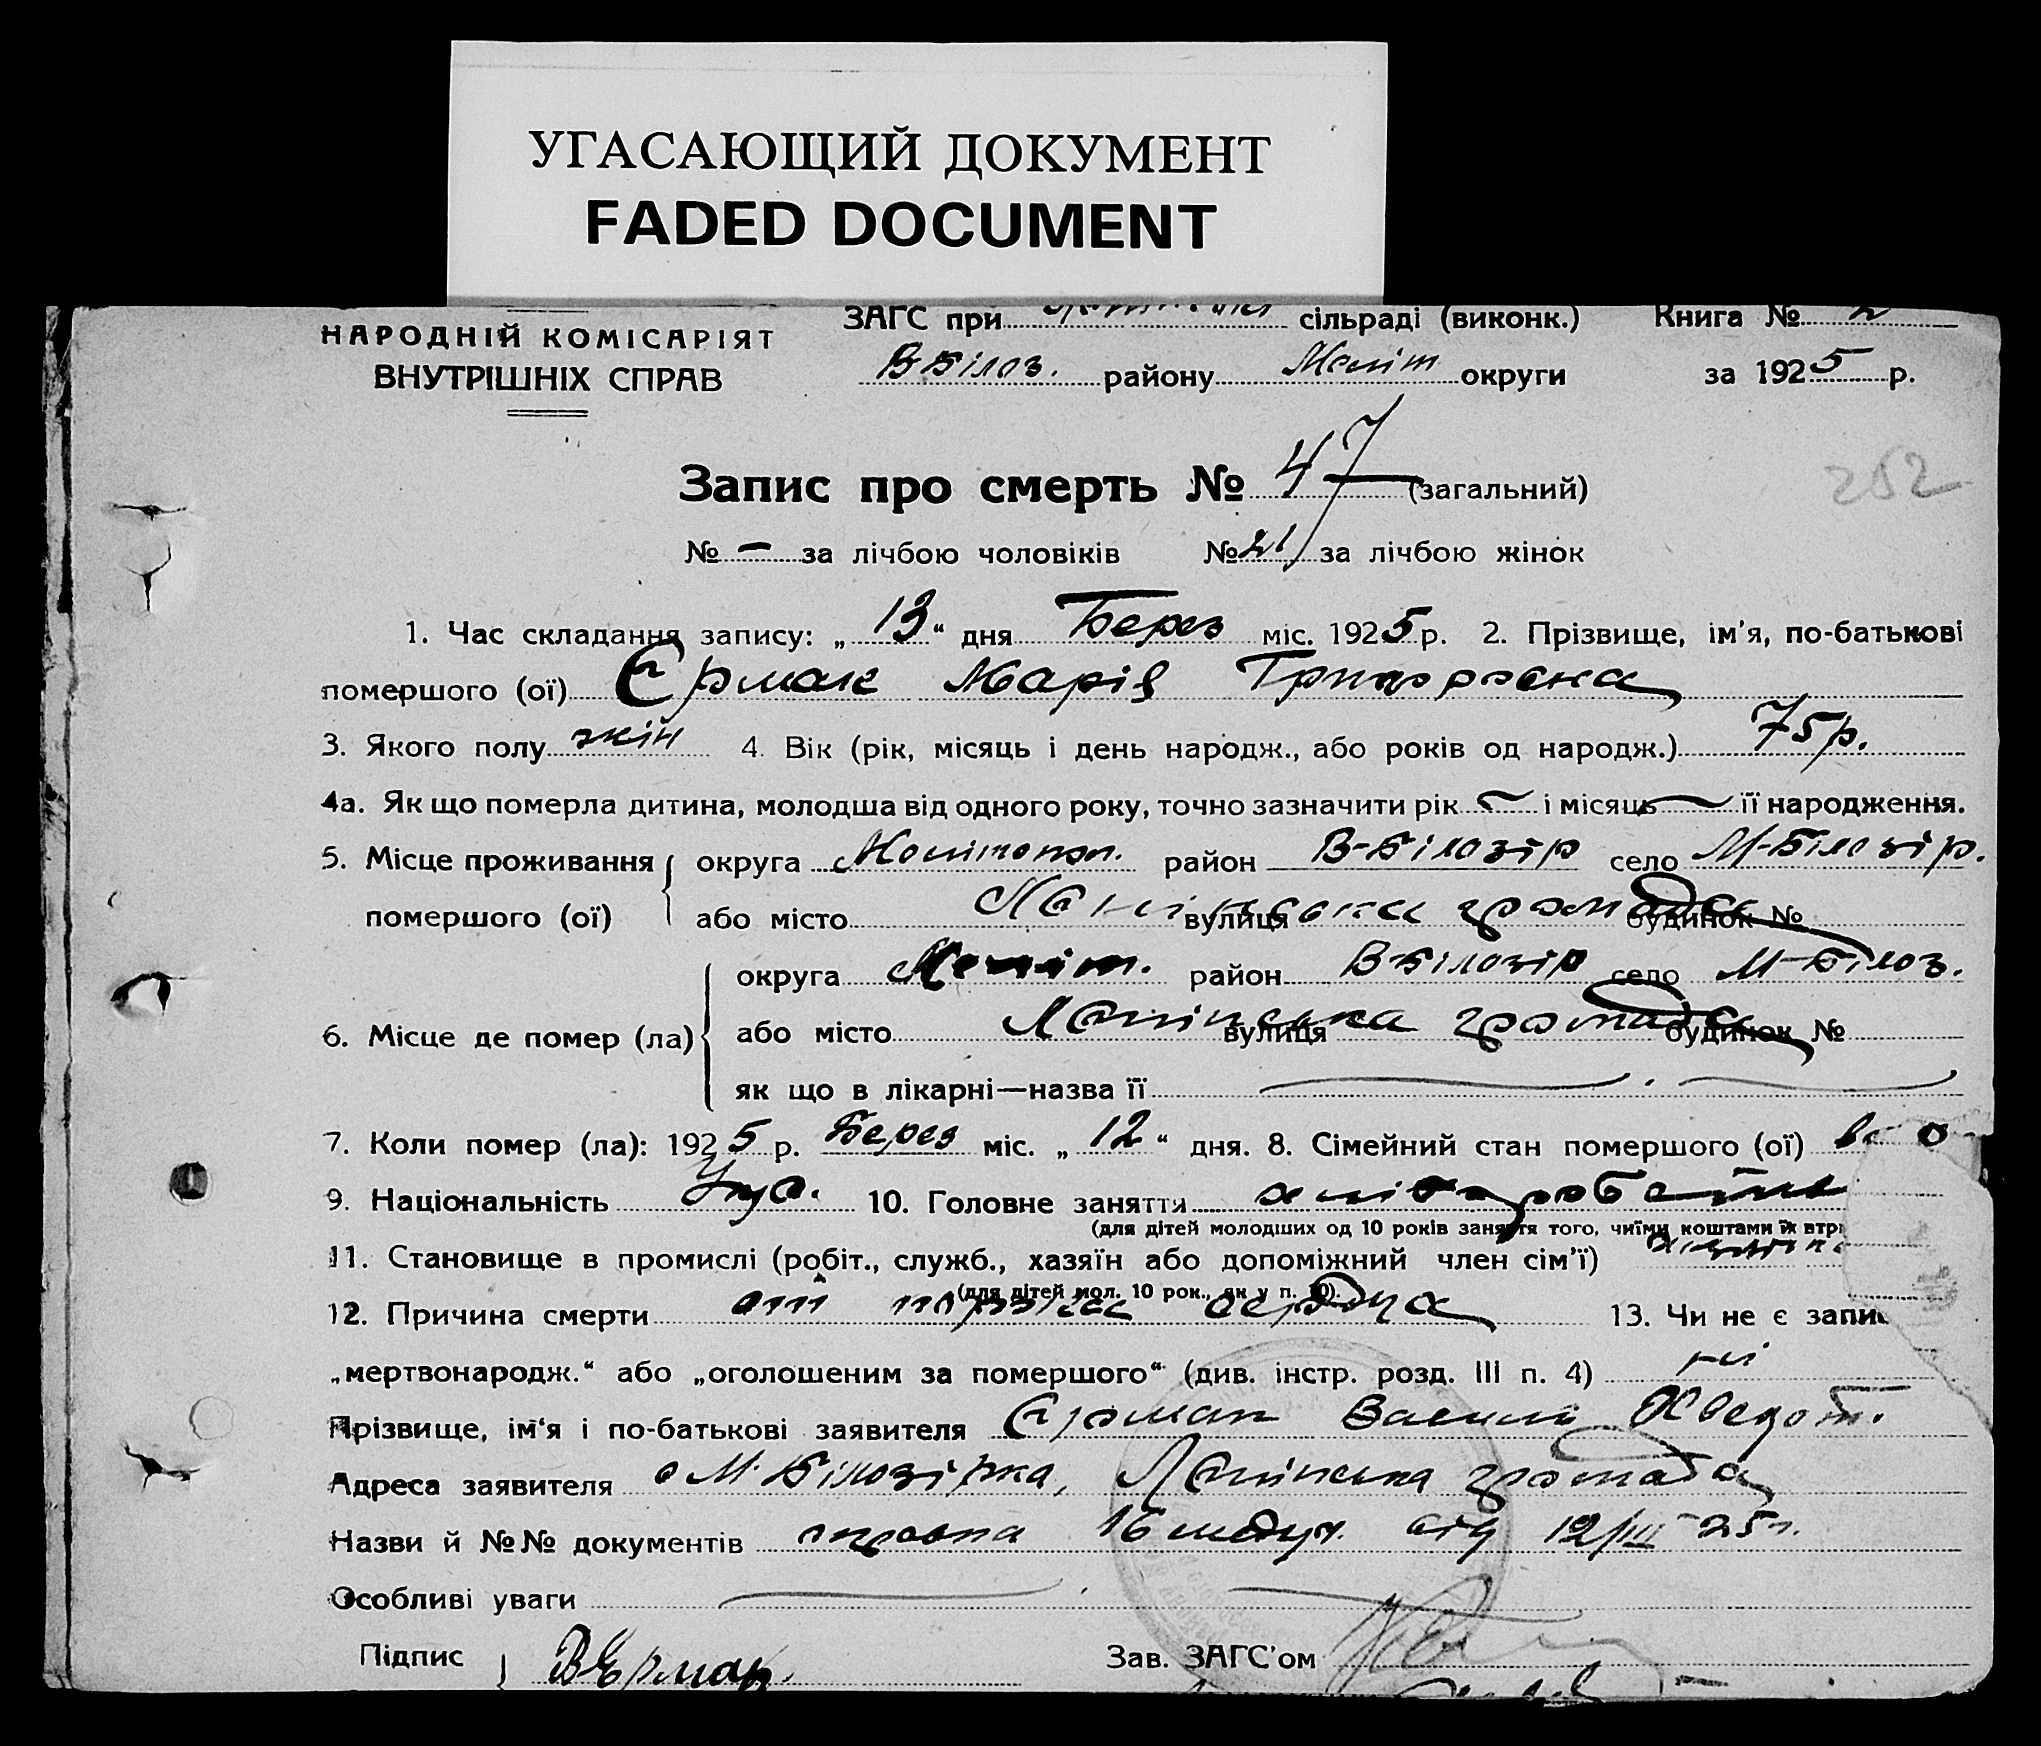 УГАСАЮЩИЙ ДОКУМЕНТ
FADED DOCUMENT
НАРОДНІЙ КОМІСАРІЯТ
ВНУТРІШНІХ СПРАВ
ЗАГС при сільраді (виконк.) Книга № 2
В-Білоз. району Меліт округи за 1925 р.
Запис про смерть № 47 (загальний)
№ — за лічбою чоловіків № 21 за лічбою жінок
1. Час складання запису: „13“ дня Берез міс. 1925 р. 2. Прізвище, ім’я, по-батькові
помершого (ої) Єрмак Марія Григоровна
3. Якого полу жін 4. Вік (рік, місяць і день народж., або років од народж.) 75 р.
4а. Як що померла дитина, молодша від одного року, точно зазначити рік — і місяць — її народження.
5. Місце проживання округа Мелітопол. район В-Білозір село М-Білозір.
помершого (ої) або місто вулиця громада будинок №
округа Меліт. район В-Білозір село М-Білоз.
6. Місце де помер (ла) або місто вулиця громада будинок №
як що в лікарні—назва її —
7. Коли помер (ла): 1925 р. Берез міс. „12“ дня. 8. Сімейний стан помершого (ої)
9. Національність Укр. 10. Головне заняття хлібаробство
(для дітей молодших од 10 років заняття того, чиїми коштами їх втри
11. Становище в промислі (робіт., служб., хазяїн або допоміжний член сім’ї)
(для дітей мол. 10 рок., як у п. 10).
12. Причина смерти от порока сердца 13. Чи не є запис
„мертвонародж.“ або „оголошеним за помершого“ (див. інстр. розд. III п. 4) ні
Прізвище, ім’я і по-батькові заявителя Єрмак Василь Хведот.
Адреса заявителя с М-Білозірка, громада
Назви й №№ документів 16 від 12/III-25 р.
Особливі уваги —
Підпис В Єрмак. Зав. ЗАГС’ом
252